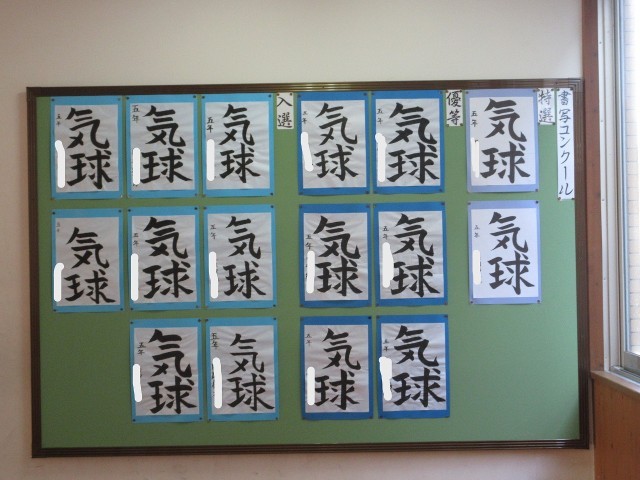 書写コンクール
特選
五年
気球
五年
気球
優等
五年
気球
五年
気球
五年
気球
五年
気球
五年
気球
五年
気球
入選
五年
気球
五年
気球
五年
気球
五年
気球
五年
気球
五年
気球
五年
気球
五年
気球